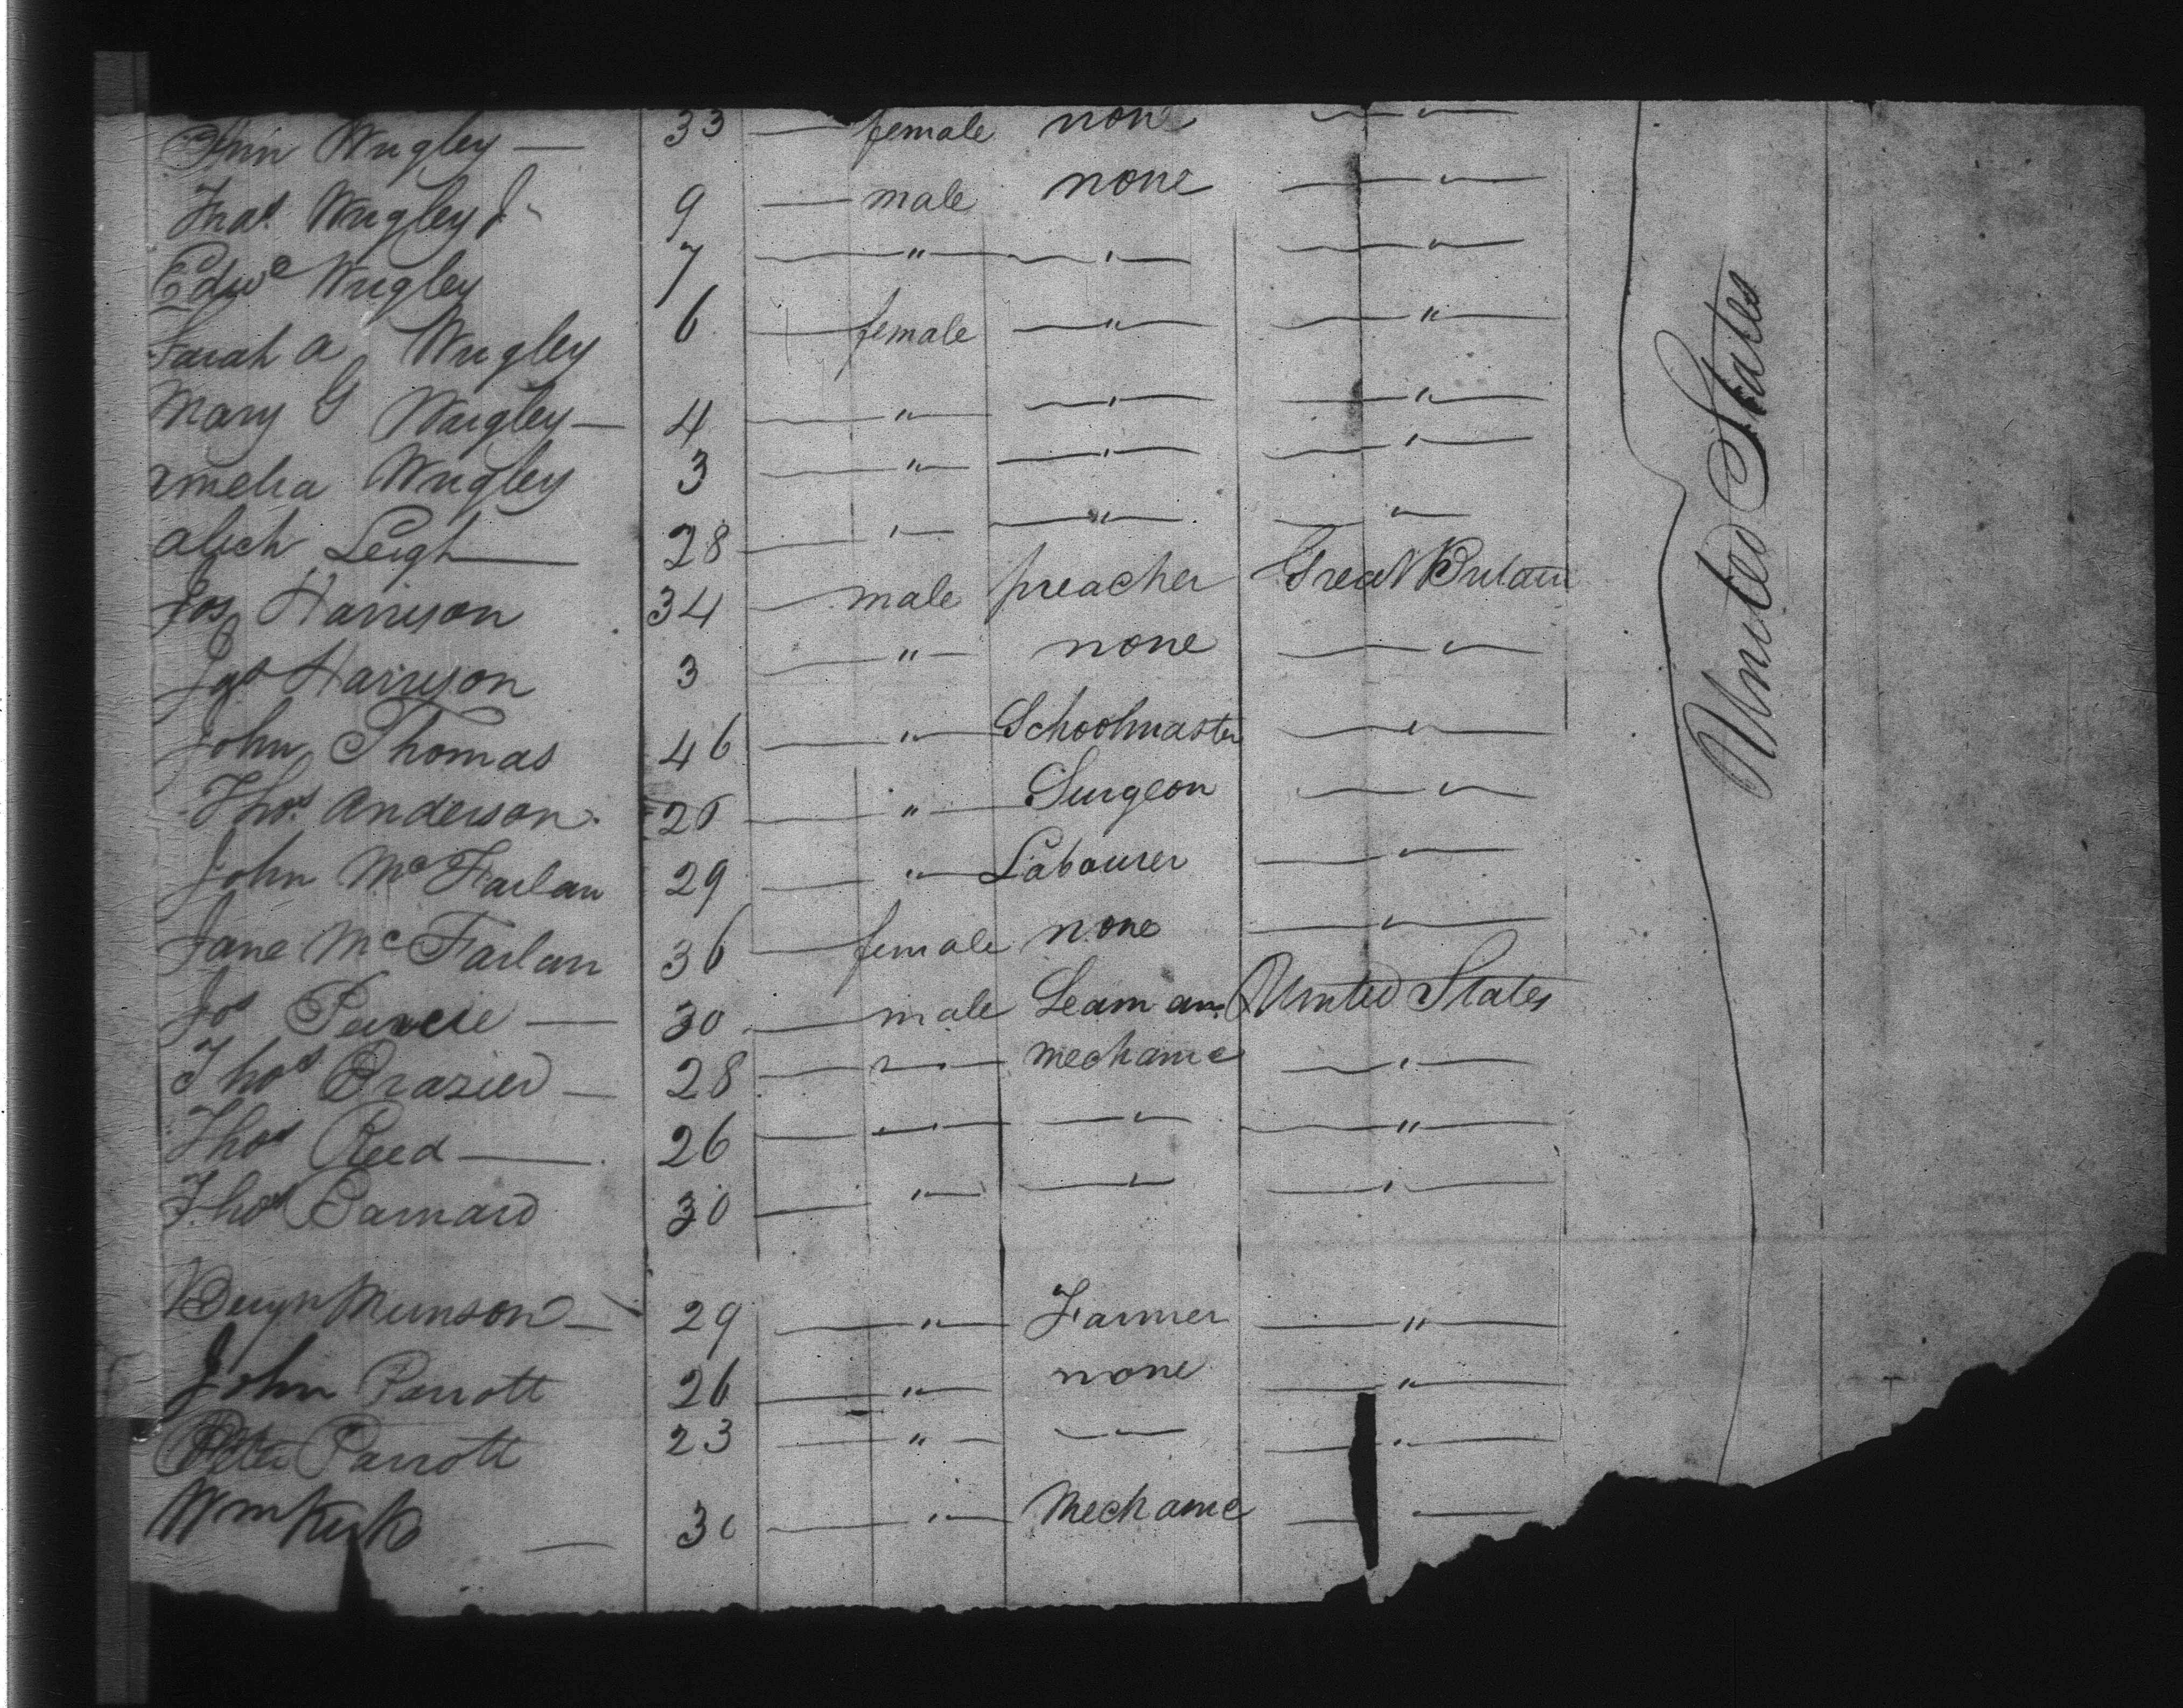 Ann Wrigley — 33 — female none — " —
Thos. Wrigley Jr 9 — male none — " —
Edwd Wrigley 7 — " — — " — — " —
Sarah A Wrigley 6 — female — " — — " —
Mary G Wrigley — 4 — " — — " — — " —
Amelia Wrigley 3 — " — — " — — " —
Alich Leigh — 28 — " — — " — — " —
Jos Harrison 34 — male preacher Great Britain
Jas Harrison 3 — " — none — " —
John Thomas 46 — " — Schoolmaster — " —
Thos. Anderson. 26 — " — Surgeon — " —
John Mc Farlan 29 — " — Labourer — " —
Jane Mc Farlan 36 — female none — " —
Jos — 30 — male Seaman United States
Thos Brazier — 28 — " — mechanic — " —
Thos Reed — 26 — " — — " — — " —
Thos Barnard 30 — " — — " — — " —
Benjn Munson — 29 — " — Farmer — " —
John Parrott 26 — " — none — " —
Peter Parrott 23 — " — — " — — " —
Wm Kirk — 30 — " — Mechanic — " —
United States